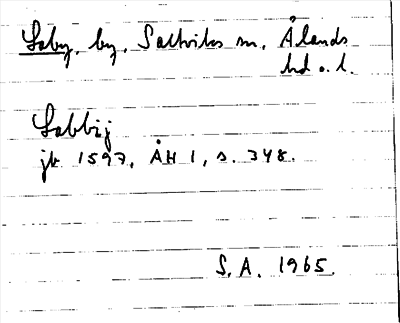 Laby, by, Saltviks sn, Ålands
hd o. l.
Labbij
jb 1597, ÅH 1, s. 348.
S.A. 1965.